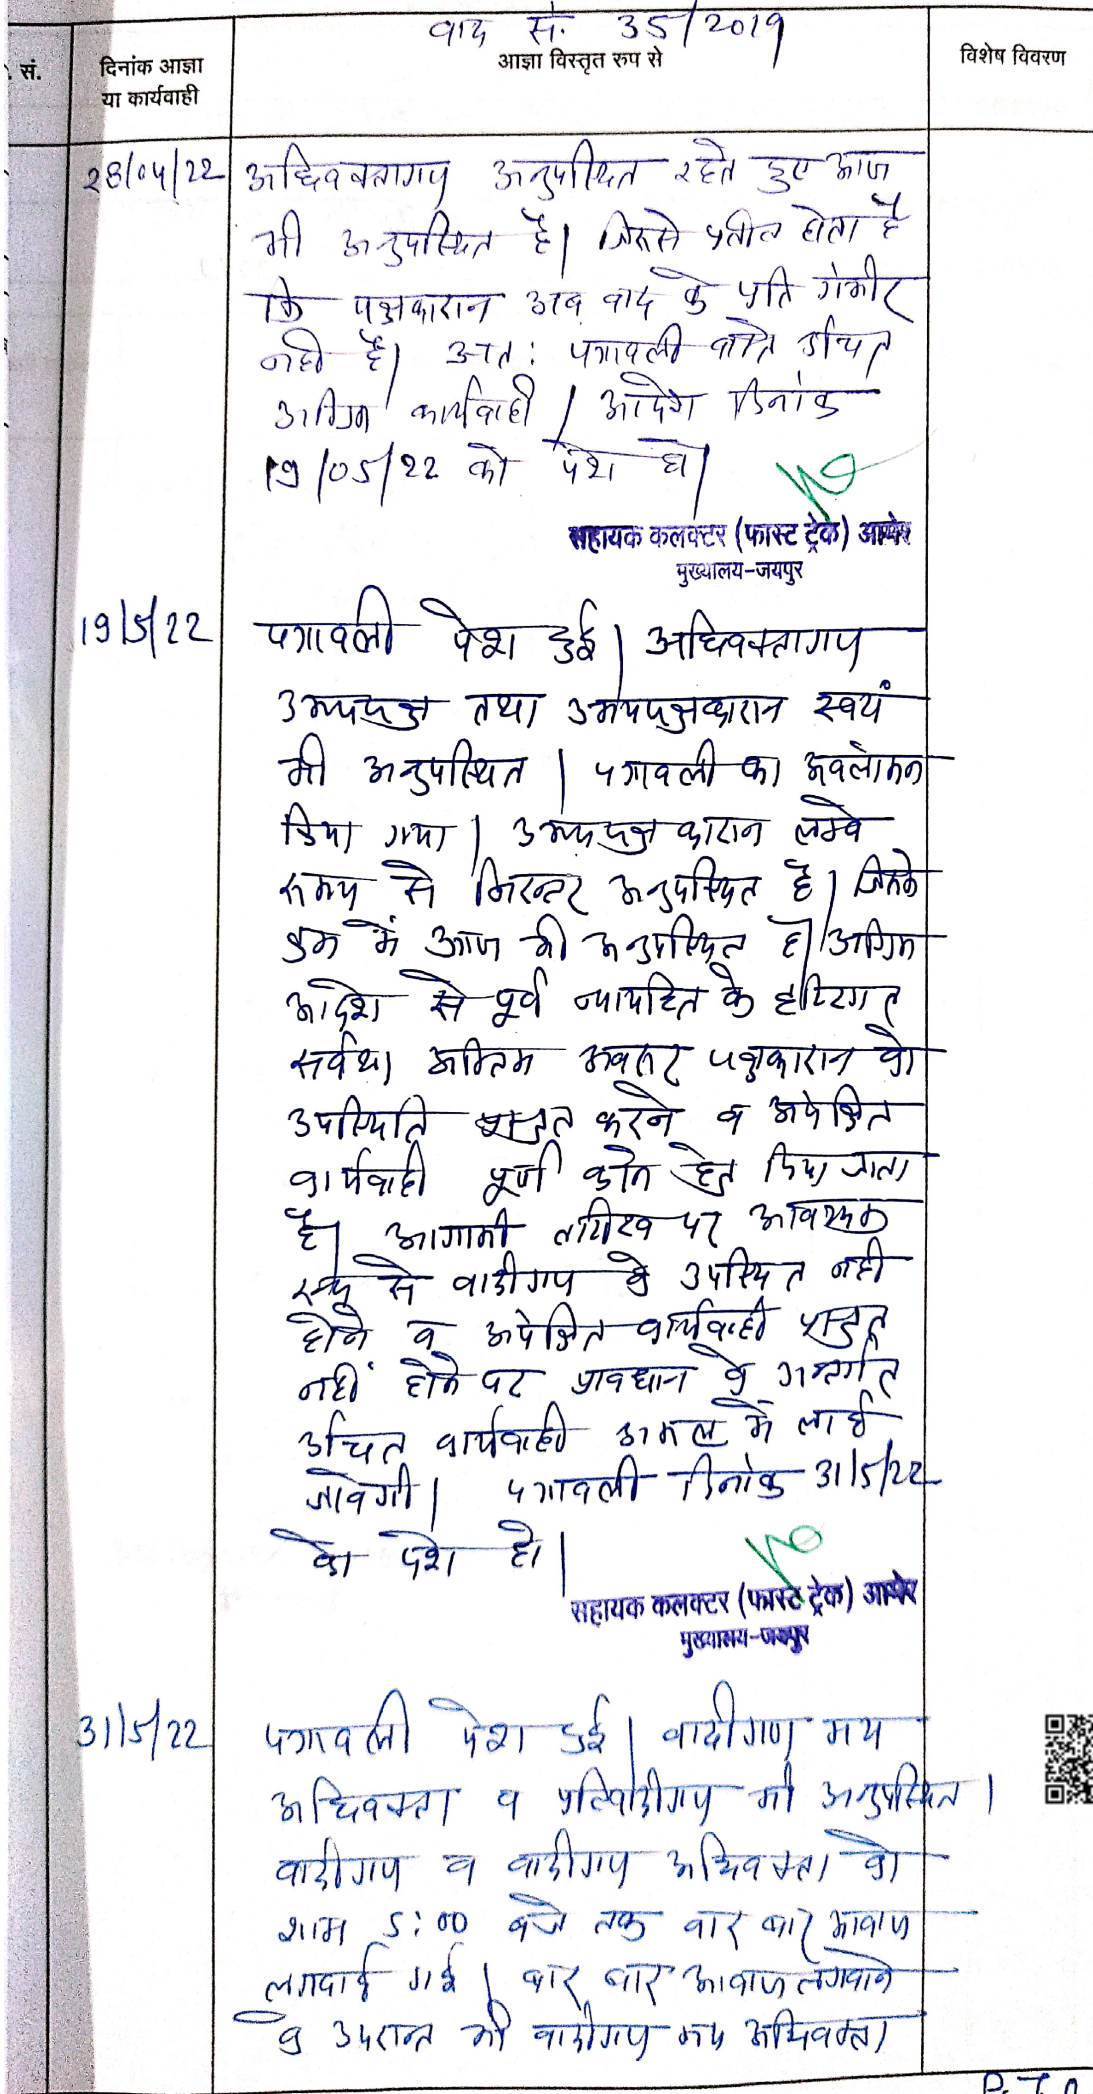 वाद सं. 35/2019
सं.
दिनांक आज्ञा
या कार्यवाही
आज्ञा विस्तृत रुप से
विशेष विवरण
28/04/22
अधिवक्तागण अनुपस्थित रहते हुए आज
भी अनुपस्थित है। जिससे प्रतीत होता है
कि पक्षकारान अब वाद के प्रति गंभीर
नही है। अत: पत्रावली वास्ते उचित
अग्रिम कार्यवाही / आदेश दिनांक
19/05/22 को पेश हो।
सहायक कलक्टर (फास्ट ट्रेक) आमेर
मुख्यालय-जयपुर
19/5/22
पत्रावली पेश हुई। अधिवक्तागण
उभयपक्ष तथा उभयपक्षकारान स्वयं
भी अनुपस्थित। पत्रावली का अवलोकन
किया गया। उभयपक्षकारान लम्बे
समय से निरन्तर अनुपस्थित है। जिसके
क्रम में आज भी अनुपस्थित है। अग्रिम
आदेश से पूर्व न्यायहित के दृष्टिगत
सर्वथा अन्तिम अवसर पक्षकारान को
उपस्थिति प्रस्तुत करने व अपेक्षित
कार्यवाही पूर्ण करने हेतु दिया जाता
है। आगामी तारीख पर आवश्यक
रूप से वादीगण के उपस्थित नही
होने व अपेक्षित कार्यवाही प्रस्तुत
नहीं होने पर प्रावधान के अन्तर्गत
उचित कार्यवाही अमल में लाई
जावेगी। पत्रावली दिनांक 31/5/22
को पेश हो।
सहायक कलक्टर (फास्ट ट्रेक) आमेर
मुख्यालय-जयपुर
31/5/22
पत्रावली पेश हुई। वादीगण मय
अधिवक्ता व प्रतिवादीगण भी अनुपस्थित।
वादीगण व वादीगण अधिवक्ता को
शाम 5:00 बजे तक बार बार आवाज
लगवाई गई। बार बार आवाज लगवाने
के उपरान्त भी वादीगण मय अधिवक्ता
P.T.O